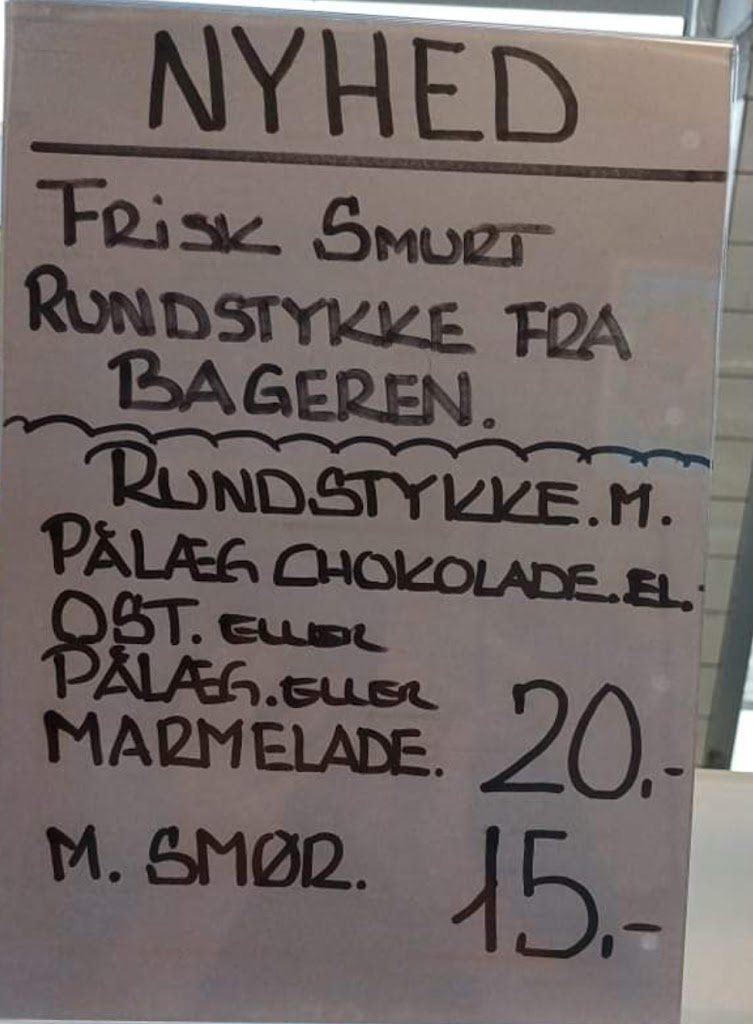 NYHED
FRiSK SMURT
RUNDSTYKKE FRA
BAGEREN.
RUNDSTYKKE.M.
PÅLÆG CHOKOLADE.EL.
OST. ELLER
PÅLÆG. ELLER
MARMELADE. 20.-
M. SMØR. 15.-